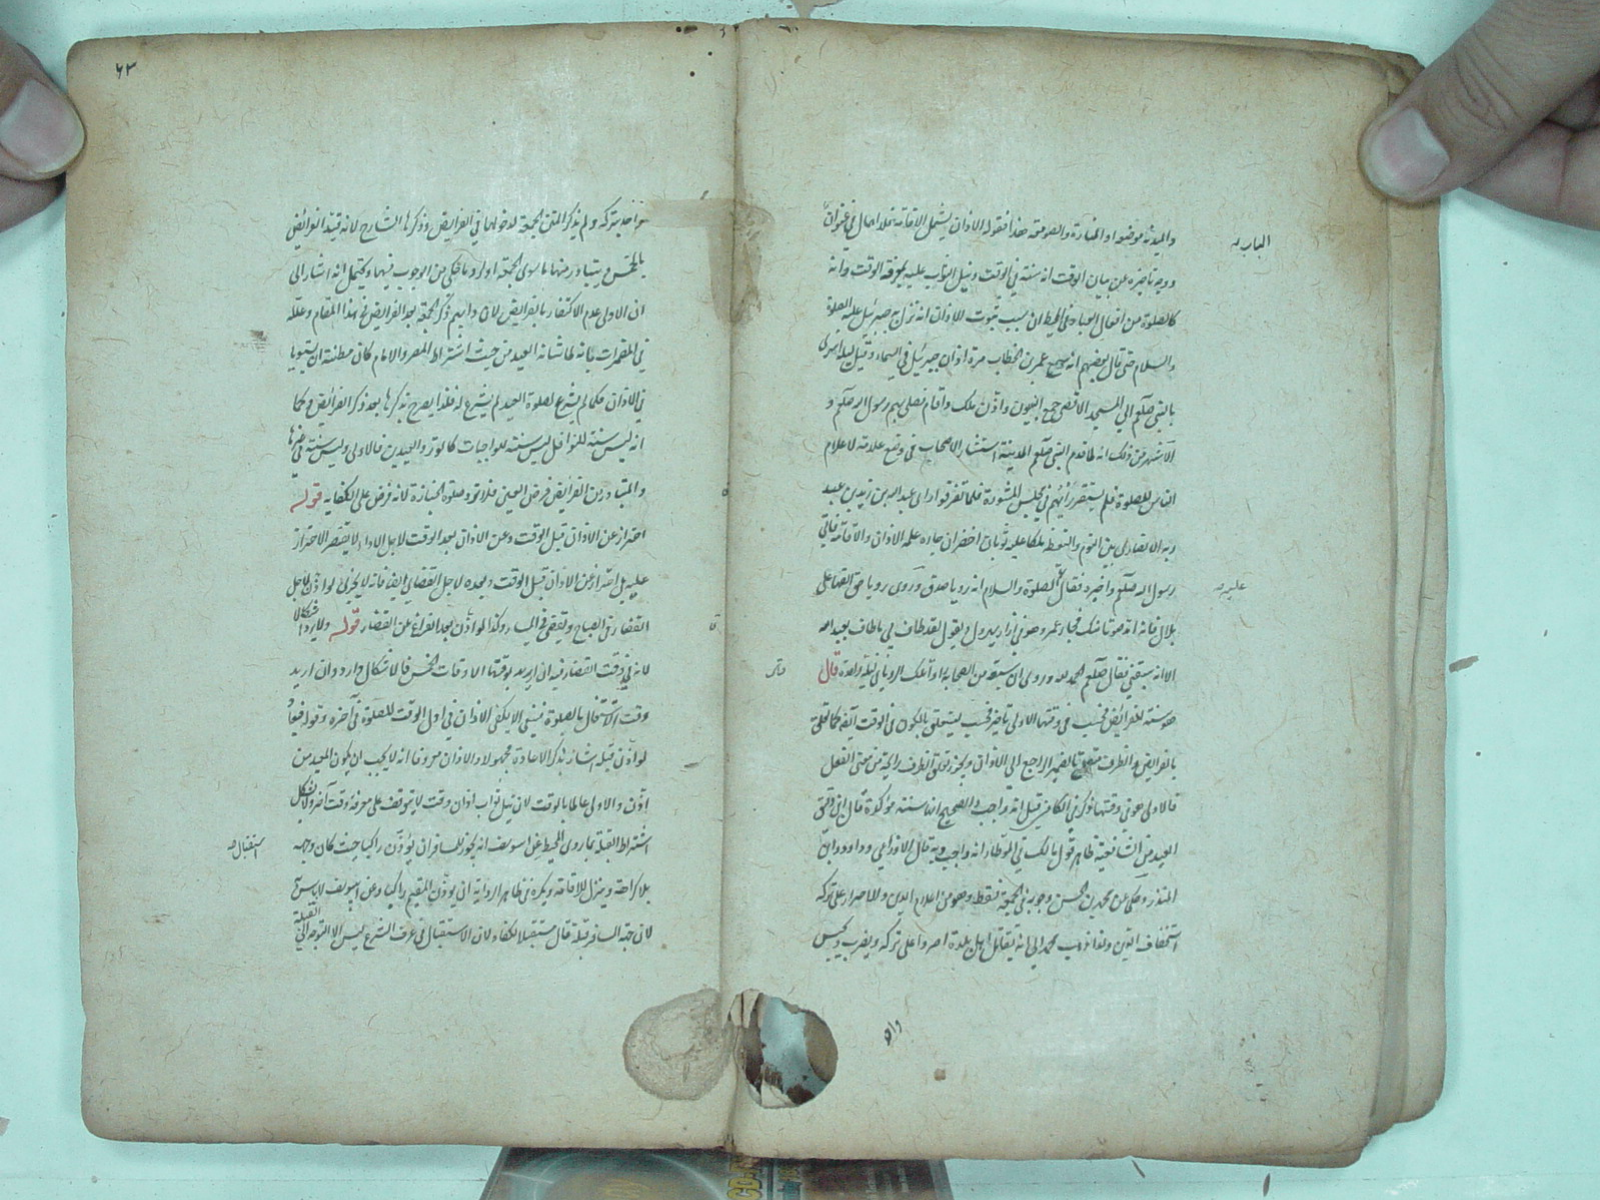 والميدنة موضعها والمنارة والصومعة هذا فقوله الاذان يشمل الاقامة
ووجه تاخيره عن بيان الوقت انه سنة في الوقت وقيل
كالصلوة من افعال العباد وفي المحيط ان سبب ثبوت الاذان انه نزل جبرئيل عليه الصلوة
والسلام حتى قال بعضهم انه سمع عمر بن الخطاب مرة اذان جبرئيل في السماء وقيل ليلة اسرى
بالنبي صلعم الي المسجد الاقصى جمع النبيون واذّن ملك واقام فصلى بهم رسول الله صلعم و
الاشهر من ذلك انه لما قدم النبي صلعم المدينة استشار الاصحاب في وضع علامة لاعلام
الناس للصلوة فلم يستقر رأيهم في مجلس المشورة فلما تفرقوا راى عبد الله بن زيد بن عبد
ربه الانصاري بين النوم واليقظة ملكا عليه ثوبان اخضران جاء علمه الاذان والاقامة فاتى
رسول الله صلعم واخبره فقال الصلوة والسلام انه رويا صدق وروى رويا حق القها على
عليه
بلال فانه اندى صوتا منك فجاء عمر وهو في ازار يهرول ويقول لقد طاف بي ما طاف بعبد الله
الا انه سبقني فقال صلعم الحمد لله وروى ان سبعة من الصحابة راوا تلك الرويا في ليلة واحدة قال
هو سنة للفرائض فحسب في وقتها الاولى تاخير فحسب
بالفرائض والظرف متعلق بالضمير الراجع الى الاذان ويجوز تعلق الظرف برايحة من معنى الفعل
فالاولى هو في وقتها وذكر في الكافي قيل انه واجب والصحيح انها سنة مؤكدة قال ابن دقيق
العيد من الشافعية ظاهر قول مالك في الموطا انه واجب وبه قال الاوزاعي وداود وابن
المنذر وحكى عن محمد بن الحسن وجوبه في الجمعة فقط وهو من اعلام الدين والاصرار على تركه
استخفاف بالدين ولهذا ذهب محمد الى انه يقاتل اهل بلدة اصروا على تركه ويضرب ويحبس
وان
٦٣
واحد بتركه ولم يذكر المتن الجمعة لدخولها في الفرايض وذكرها الشارح لانه قيد الفرائض
بالخمس ويتبادر منها ما سوى الجمعة اولى وما حكي من الوجوب فيها ويحتمل انه اشار الى
ان الاولى عدم الاكتفاء بالفرايض لان دابهم ذكر الجمعة بعد الفرايض في هذا المقام وعلله
في المضمرات بانه لما شابه العيد من حيث اشتراط المصر والامام كان مظنة ان يستويا
في الاذان فكما لم يشرع لصلوة العيد لم يشرع له فلذا يصرح بذكرها بعد ذكر الفرائض وكما
انه ليس سنة للنوافل ليس سنة للواجبات كالوتر والعيدين فالاولى وليس سنة في غيرها
والمتبادر من الفرائض فرض العين فلا تردد صلوة الجنازة لانه فرض على الكفاية قوله
احتراز عن الاذان قبل الوقت وعن الاذان بعد الوقت لاجل الاداء لا يقتصر الاحتراز
عليه بل احتراز عن الاذان قبل الوقت وبعده لاجل القضاء ايضا فانه لا يجزئ لو اذّن لاجل
القضاء في الصباح ويقضي في المساء وكذا لو اذّن بعد الفراغ عن القضاء قوله ولا يرد اشكالا
لانه في وقت القضاء فيه ان اريد بوقتها الاوقات الخمس فالاشكال وارد وان اريد
وقت الاشتغال بالصلوة فينبغي الا يكفي الاذان في اول الوقت للصلوة في آخره وقوله فيعاد
لو اذّن قبله اشار بذكر الاعادة مجهولا والاذان معروفا انه لا يجب ان يكون المعيد من
اذّن والاولى عالما بالوقت لان نيل ثواب اذان وقت لا يتوقف على معرفة وقت آخر ولا يشكل
اشتراط القبلة بما روى المحيط عن ابي يوسف انه يجوز للمسافر ان يؤذّن راكبا حيث كان وجهه
استقبال
بلا كراهة وينزل للاقامة ويكره في ظاهر الرواية ان يؤذّن المقيم راكبا وعن ابي يوسف لا باس به
لان جهة السافر قبلة قال مستقبلا لكفاه لان الاستقبال في عرف الشرع ليس الا التوجه الى القبلة